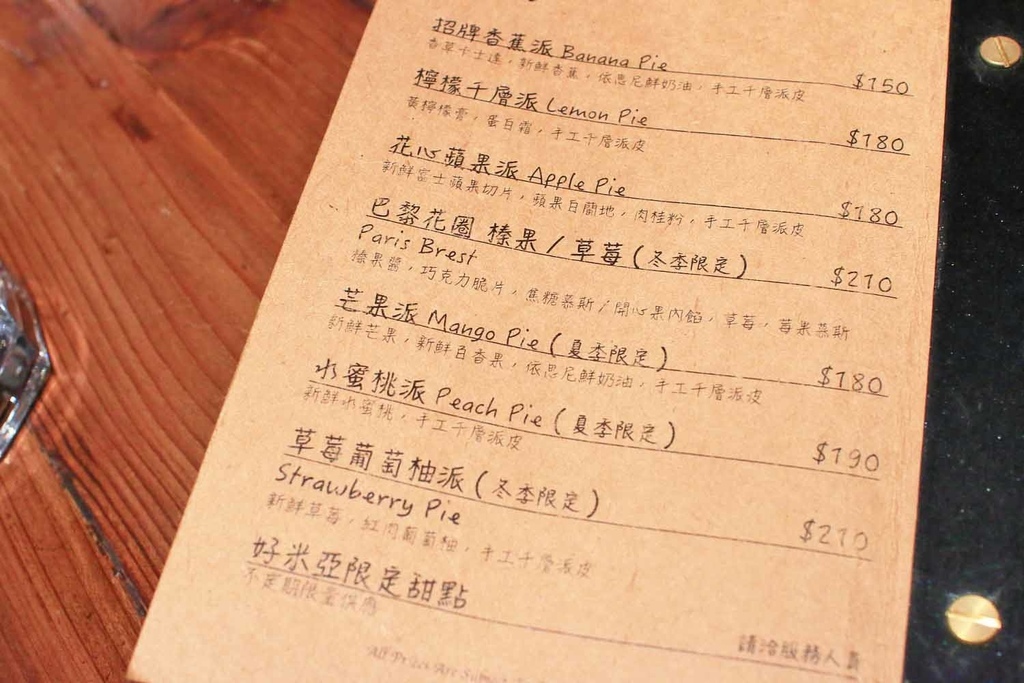 招牌香蕉派 Banana Pie $150
香草卡士達，新鮮香蕉，依思尼鮮奶油，手工千層派皮
檸檬千層派 Lemon Pie $180
黃檸檬膏，蛋白霜，手工千層派皮
花心蘋果派 Apple Pie $180
新鮮富士蘋果切片，蘋果白蘭地，肉桂粉，手工千層派皮
巴黎花圈 榛果/草莓(冬季限定) $210
Paris Brest
榛果醬，巧克力脆片，焦糖慕斯/開心果內餡，草莓，莓果慕斯
芒果派 Mango Pie (夏季限定) $180
新鮮芒果，新鮮百香果，依思尼鮮奶油，手工千層派皮
水蜜桃派 Peach Pie (夏季限定) $190
新鮮水蜜桃，手工千層派皮
草莓葡萄柚派(冬季限定) $210
Strawberry Pie
新鮮草莓，紅肉葡萄柚，手工千層派皮
好米亞限定甜點 請洽服務人員
不定期限量供應
All Prices Are